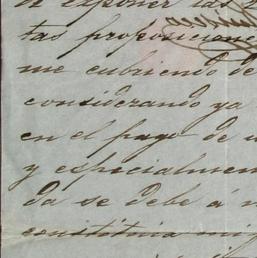 de exponer las
tas proposicione
me cubriendo de
considerando ya
en el pago de
y especialmen
da se debe á
constituia ni